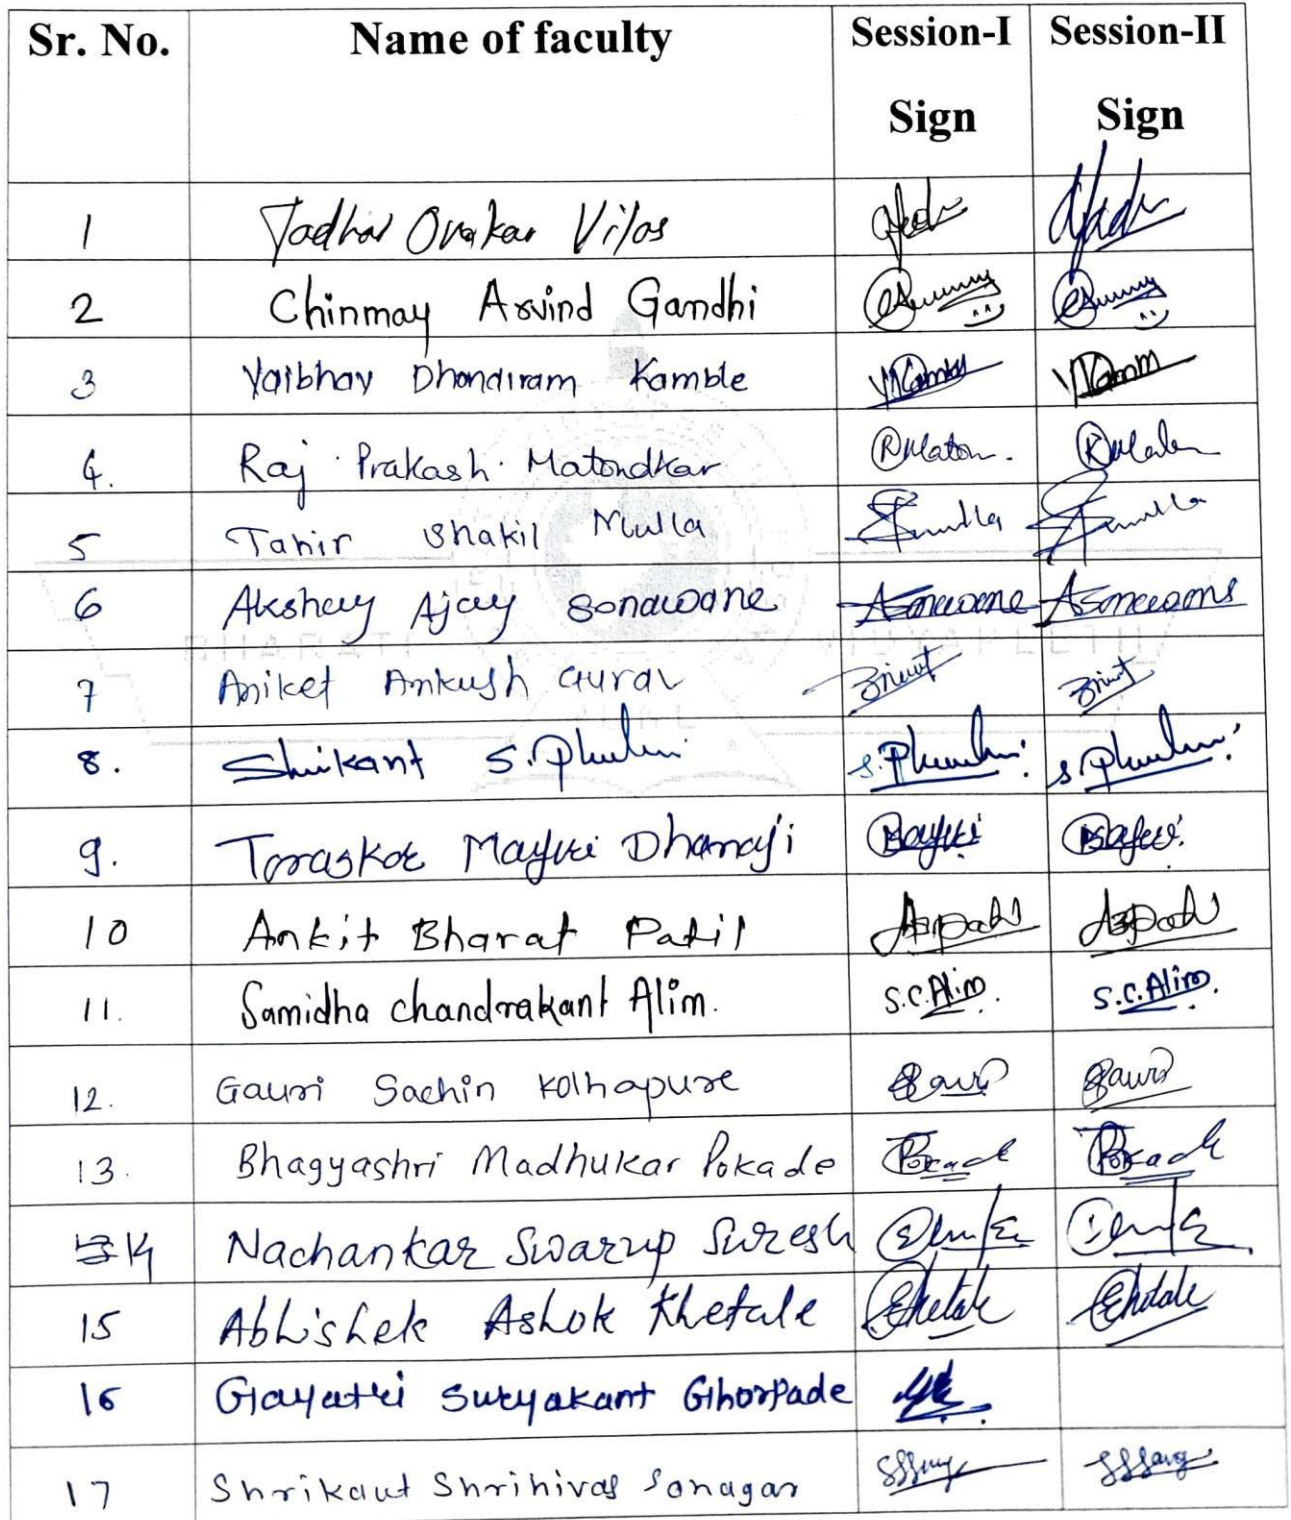 Sr. No. Name of faculty Session-I Sign Session-II Sign
1 Jadhav Omkar Vilas
2 Chinmay Arvind Gandhi
3 Vaibhav Dhondiram Kamble
4. Raj Prakash Matondkar
5 Tahir Shakil Mulla Smulla Smulla
6 Akshay Ajay Sonawane Asonawane Asonawane
BHARATI VIDYAPEETH
7 Aniket Ankush Gurav
8. Shrikant S.
9. Toraskar Mayuri Dhanaji
10 Ankit Bharat Patil ABPatil ABPatil
11. Samidha Chandrakant Alim. S.C.Alim. S.C.Alim.
12. Gauri Sachin Kolhapure Gauri Gauri
13. Bhagyashri Madhukar Pokade Pokade Pokade
14 Nachankar Swarup Suresh
15 Abhishek Ashok Khetale Khetale Khetale
16 Gayatri Suryakant Ghorpade
17 Shrikant Shrinivas Sonagar